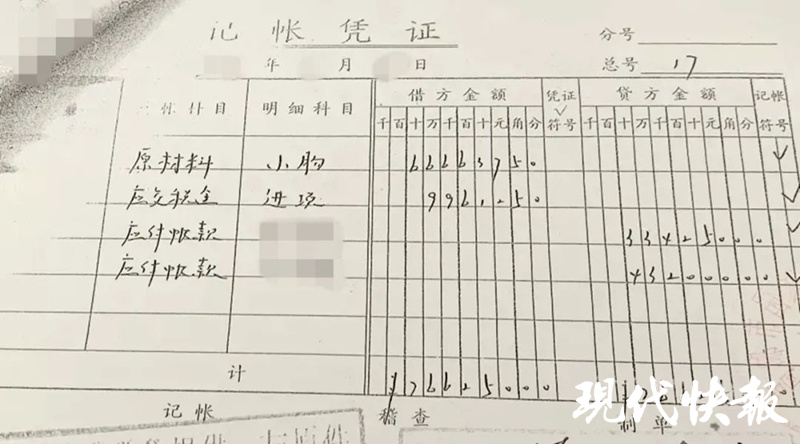 记帐凭证
分号
年 月 日
总号 17
帐科目 明细科目 借方金额 凭证符号 贷方金额 记帐符号
千百十万千百十元角分 千百十万千百十元角分
原材料 66663750 ✓
应交税金 进项 9961250 ✓
应付帐款 33425000 ✓
应付帐款 43200000 ✓
计 ¥76625000
记帐 稽查 制单
现代快报